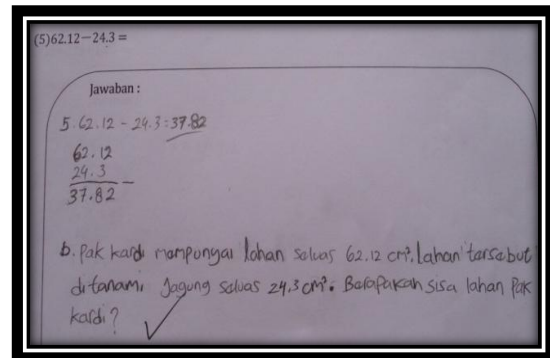 (5)62.12−24.3 =
Jawaban :
5. 62.12 - 24.3 = 37.82
62.12
24.3
37.82
b. Pak kardi mempunyai lahan seluas 62.12 cm². Lahan tersebut
ditanami Jagung seluas 24.3 cm². Berapakah sisa lahan Pak
kardi?